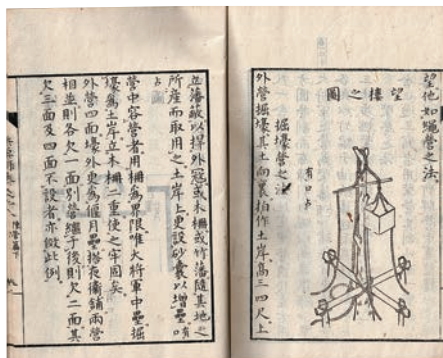 望他如繩營之法
望樓之圖
有口占
掘壕營之法
外營掘壕其土向裏拍作土岸高三四尺上
立藩蔽以捍外寇或木柵或竹藩隨其地之
所産而取用之土岸上更設砂嚢以增壘口有
占圖
營中容營者用柵爲界限唯大將軍中壘掘
壕爲土岸立木柵二重使之牢固矣
外營四面壕外更爲偃月壘搭夜衞舖兩營
相並則各欠一面別營繼于後則欠二面其
欠三面及四面不設者亦倣此例